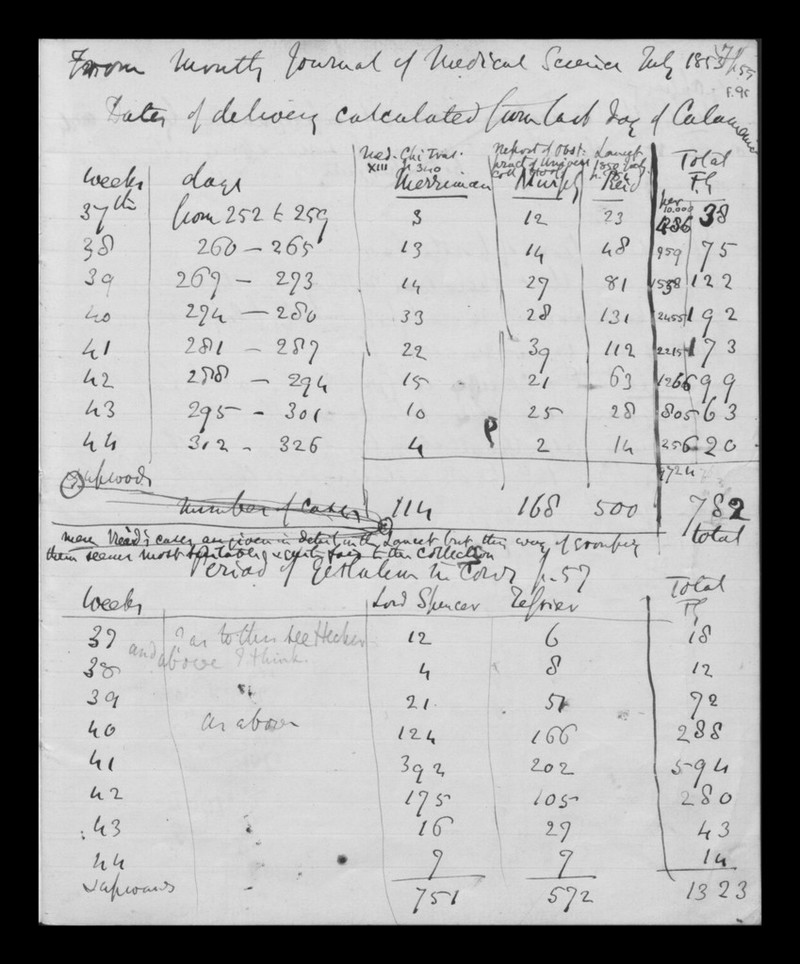 From Month Journal of Medical Science July 1853
F. 95
Dates of delivery calculated from last day of Catamenia
Med. Chi Tra. XIII p. 340 Report of Obst. pract of Univers Coll Lancet 1850 July Total
weeks days Merriman Murphy Reid
37th from 252 to 259 3 12 23 per 10,000 486 38
38 260 – 265 13 14 48 959 75
39 267 – 273 14 27 81 1558 122
40 274 – 280 33 28 131 2455 192
41 281 – 287 22 39 112 2215 173
42 288 – 294 15 21 63 1266 99
43 295 – 301 10 25 28 805 63
44 302 – 326 4 2 14 256 20
& upwards 9724
Number of Cases 114 168 500 782
total
these Reid's cases are given in detail in the Lancet but this way of grouping
them seems most suitable & quite fair to the Collection
Period of Gestation in Cows p. 57
Total
weeks Lord Spencer Tessier
37 ? as to this see Hecker 12 6 18
and above I think.
38 4 8 12
39 " 21 51 72
40 as above 124 166 288
41 392 202 594
42 175 105 280
43 16 27 43
44 7 7 14
& upwards 751 572 1323